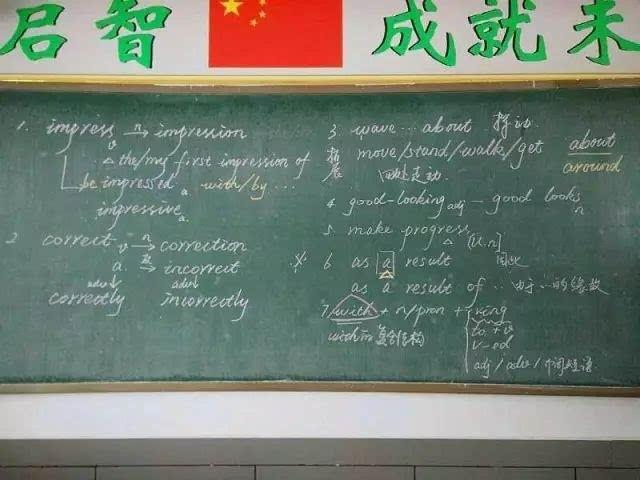 启智 成就未
1. impress v n→ impression
△ the/my first impression of
be impressed a with/by ...
impressive a.
2 correct v n→ correction
a. 反→ incorrect
adv adv
correctly incorrectly
3. wave ... about 挥动.
拓展 move/stand/walk/get about
around
四处走动.
4 good-looking adj - good looks n
5. make progress △ [u.n]
※ 6 as a result 因此
as a result of .. 由于…的缘故
7 with + n/pron + v-ing
to + v
v-ed
adj/adv/介词短语
with 复合结构